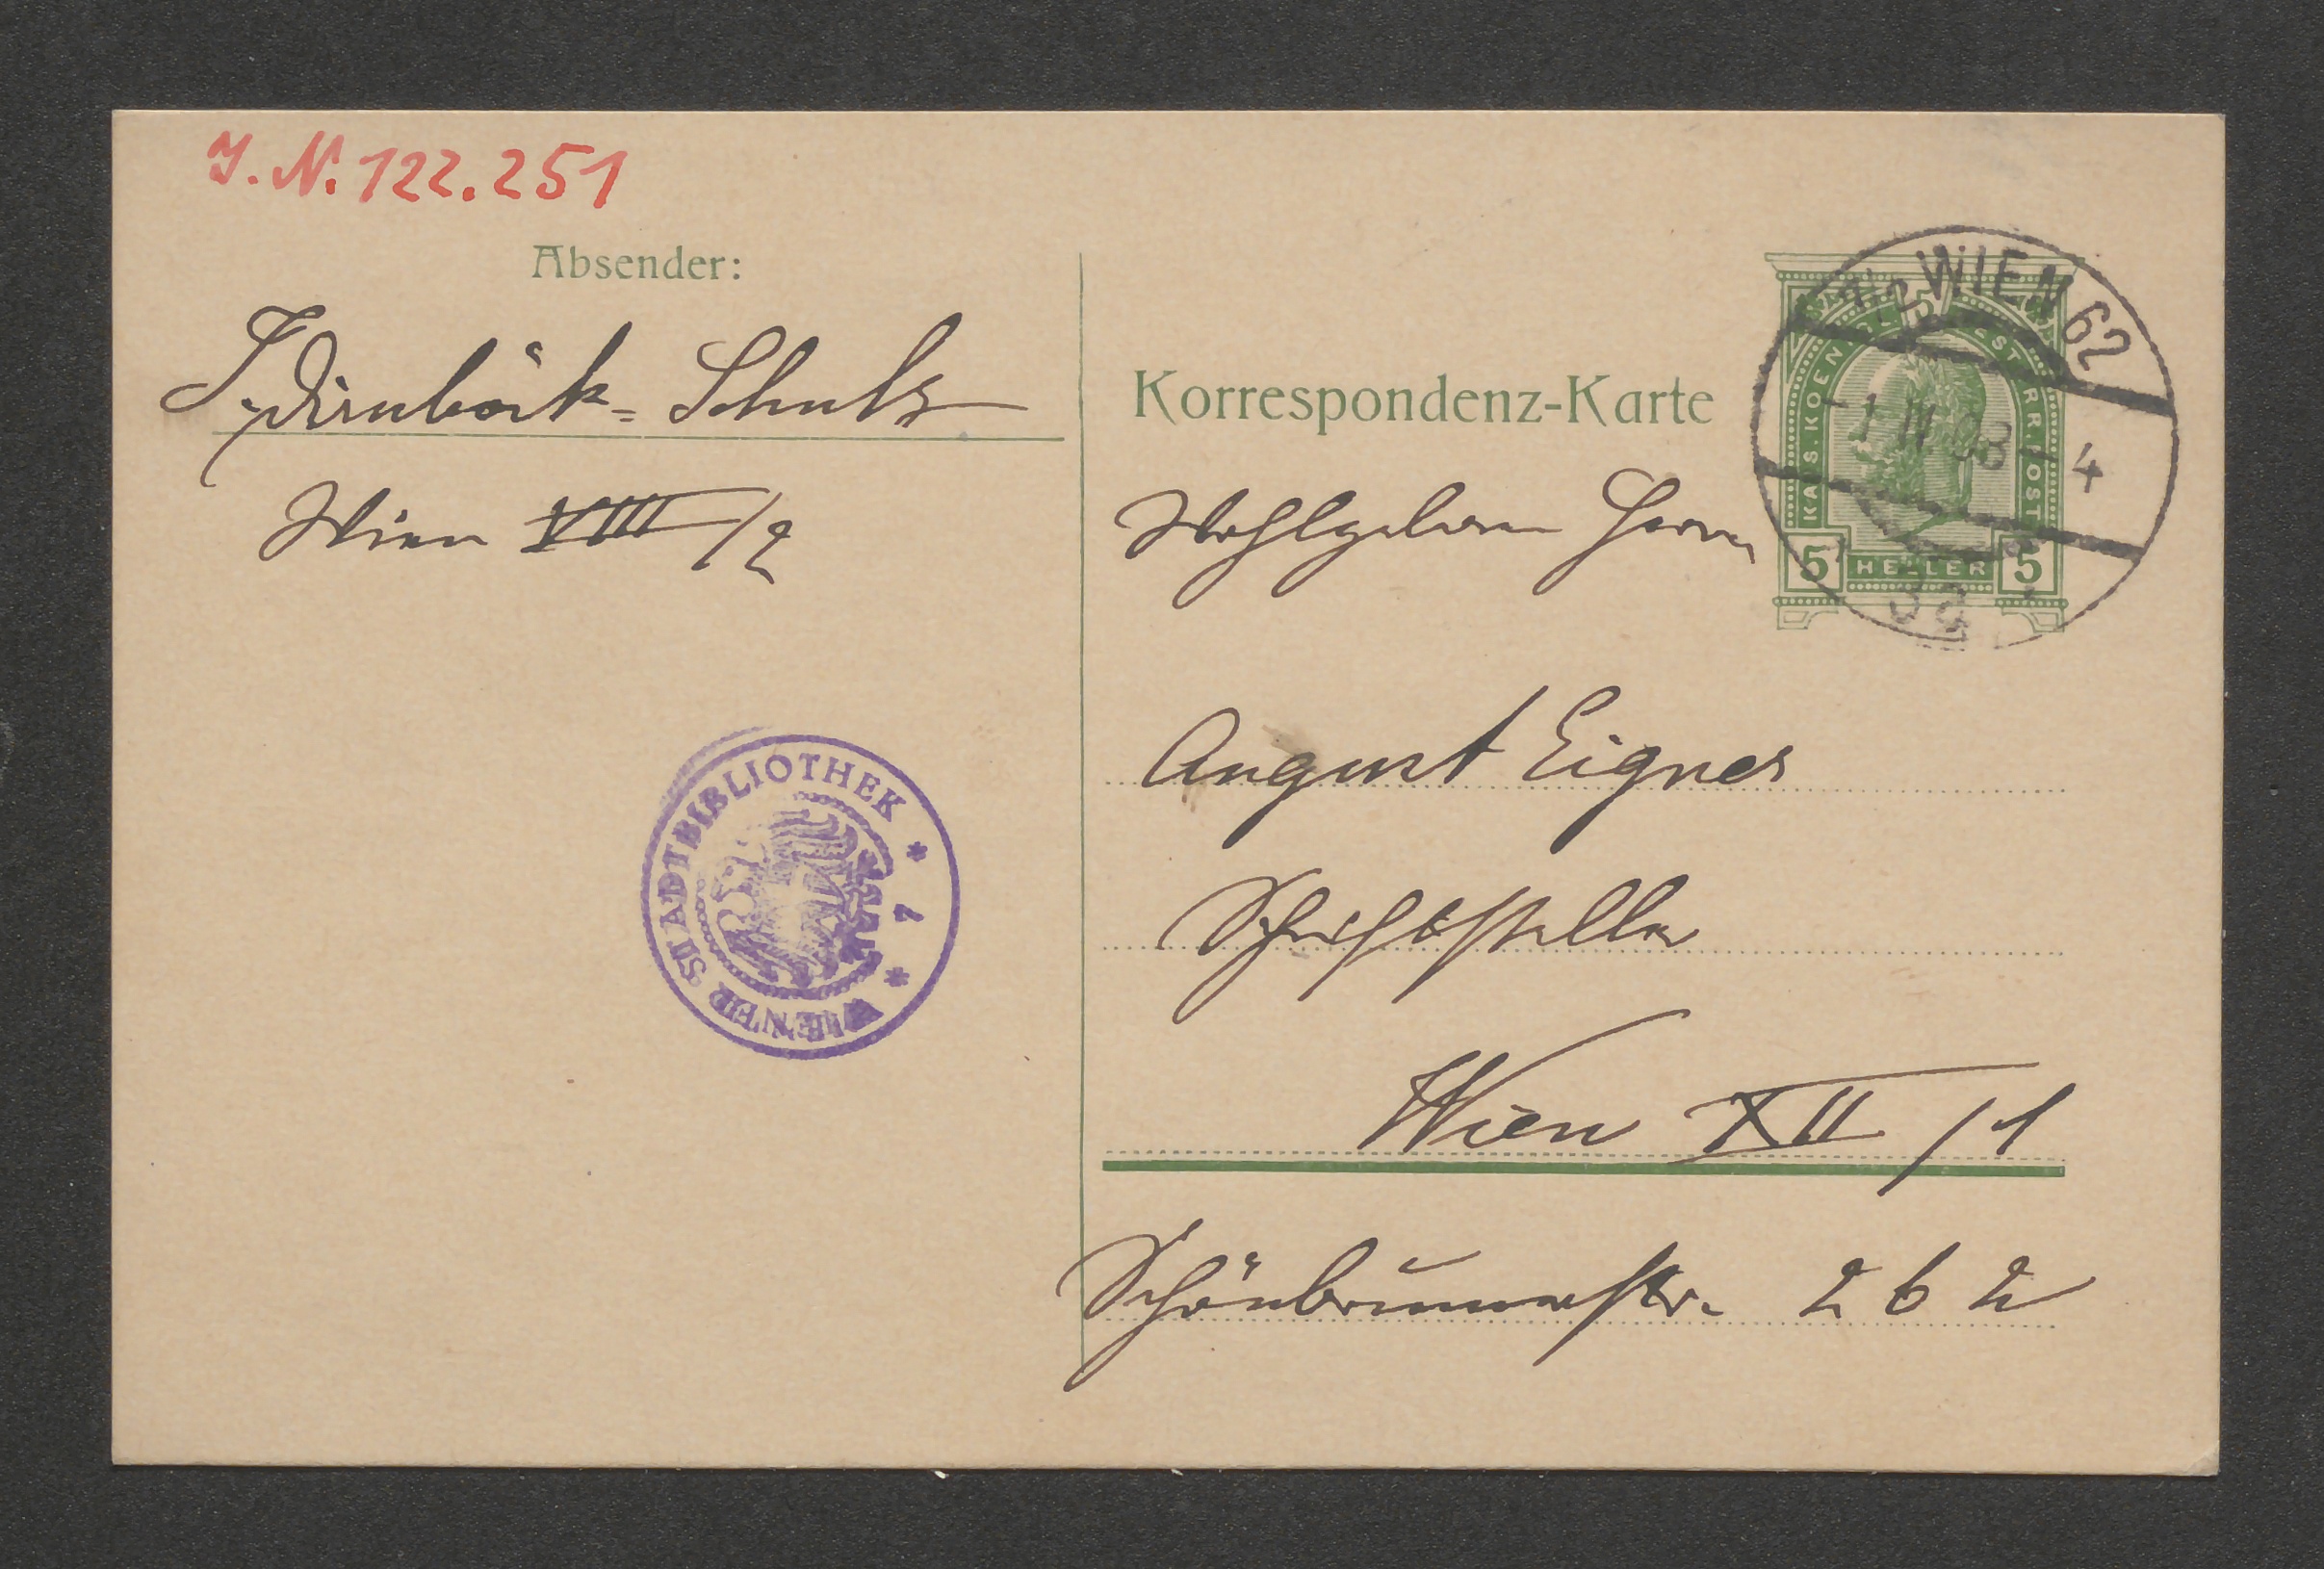 J. N. 122.251
Absender:
J. Dirnböck-Schulz
Wien VIII/2
WIENER STADTBIBLIOTHEK * 1 *
Korrespondenz-Karte
WIEN 62
-1 IV 08 - 4
KAIS. KOENIGL. OESTERR. POST
5 HELLER 5
Wohlgeboren Herrn
August Eigner
Schriftsteller
Wien XII/1
Schönbrunnerstr. 262